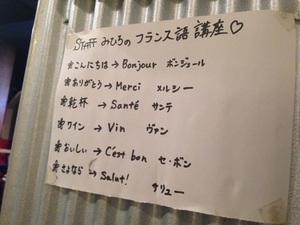 STAFF みひろの フランス語 講座♡
❀こんにちは→Bonjour ボンジュール
❀ありがとう→Merci メルシー
❀乾杯→Santé サンテ
❀ワイン→Vin ヴァン
❀おいしい→C'est bon セ・ボン
❀さよなら→Salut! サリュー